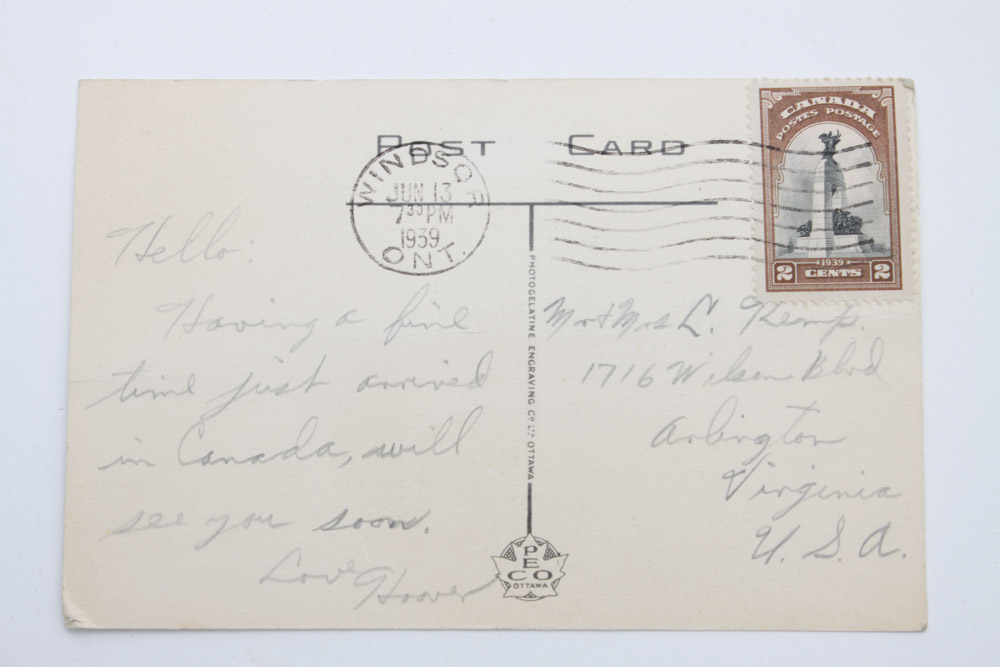 POST CARD
WINDSOR
JUN 13
7 30 PM
1939
ONT.
CANADA
POSTES POSTAGE
1939
2 CENTS 2
Hello:
Having a fine
time just arrived
in Canada, will
see you soon.
Love Hoover
PHOTOGELATINE ENGRAVING CO. LTD. OTTAWA
Mr & Mrs L. Kemp.
1716 Wilson Blvd
Arlington
Virginia
U. S. A.
P
E
CO
OTTAWA